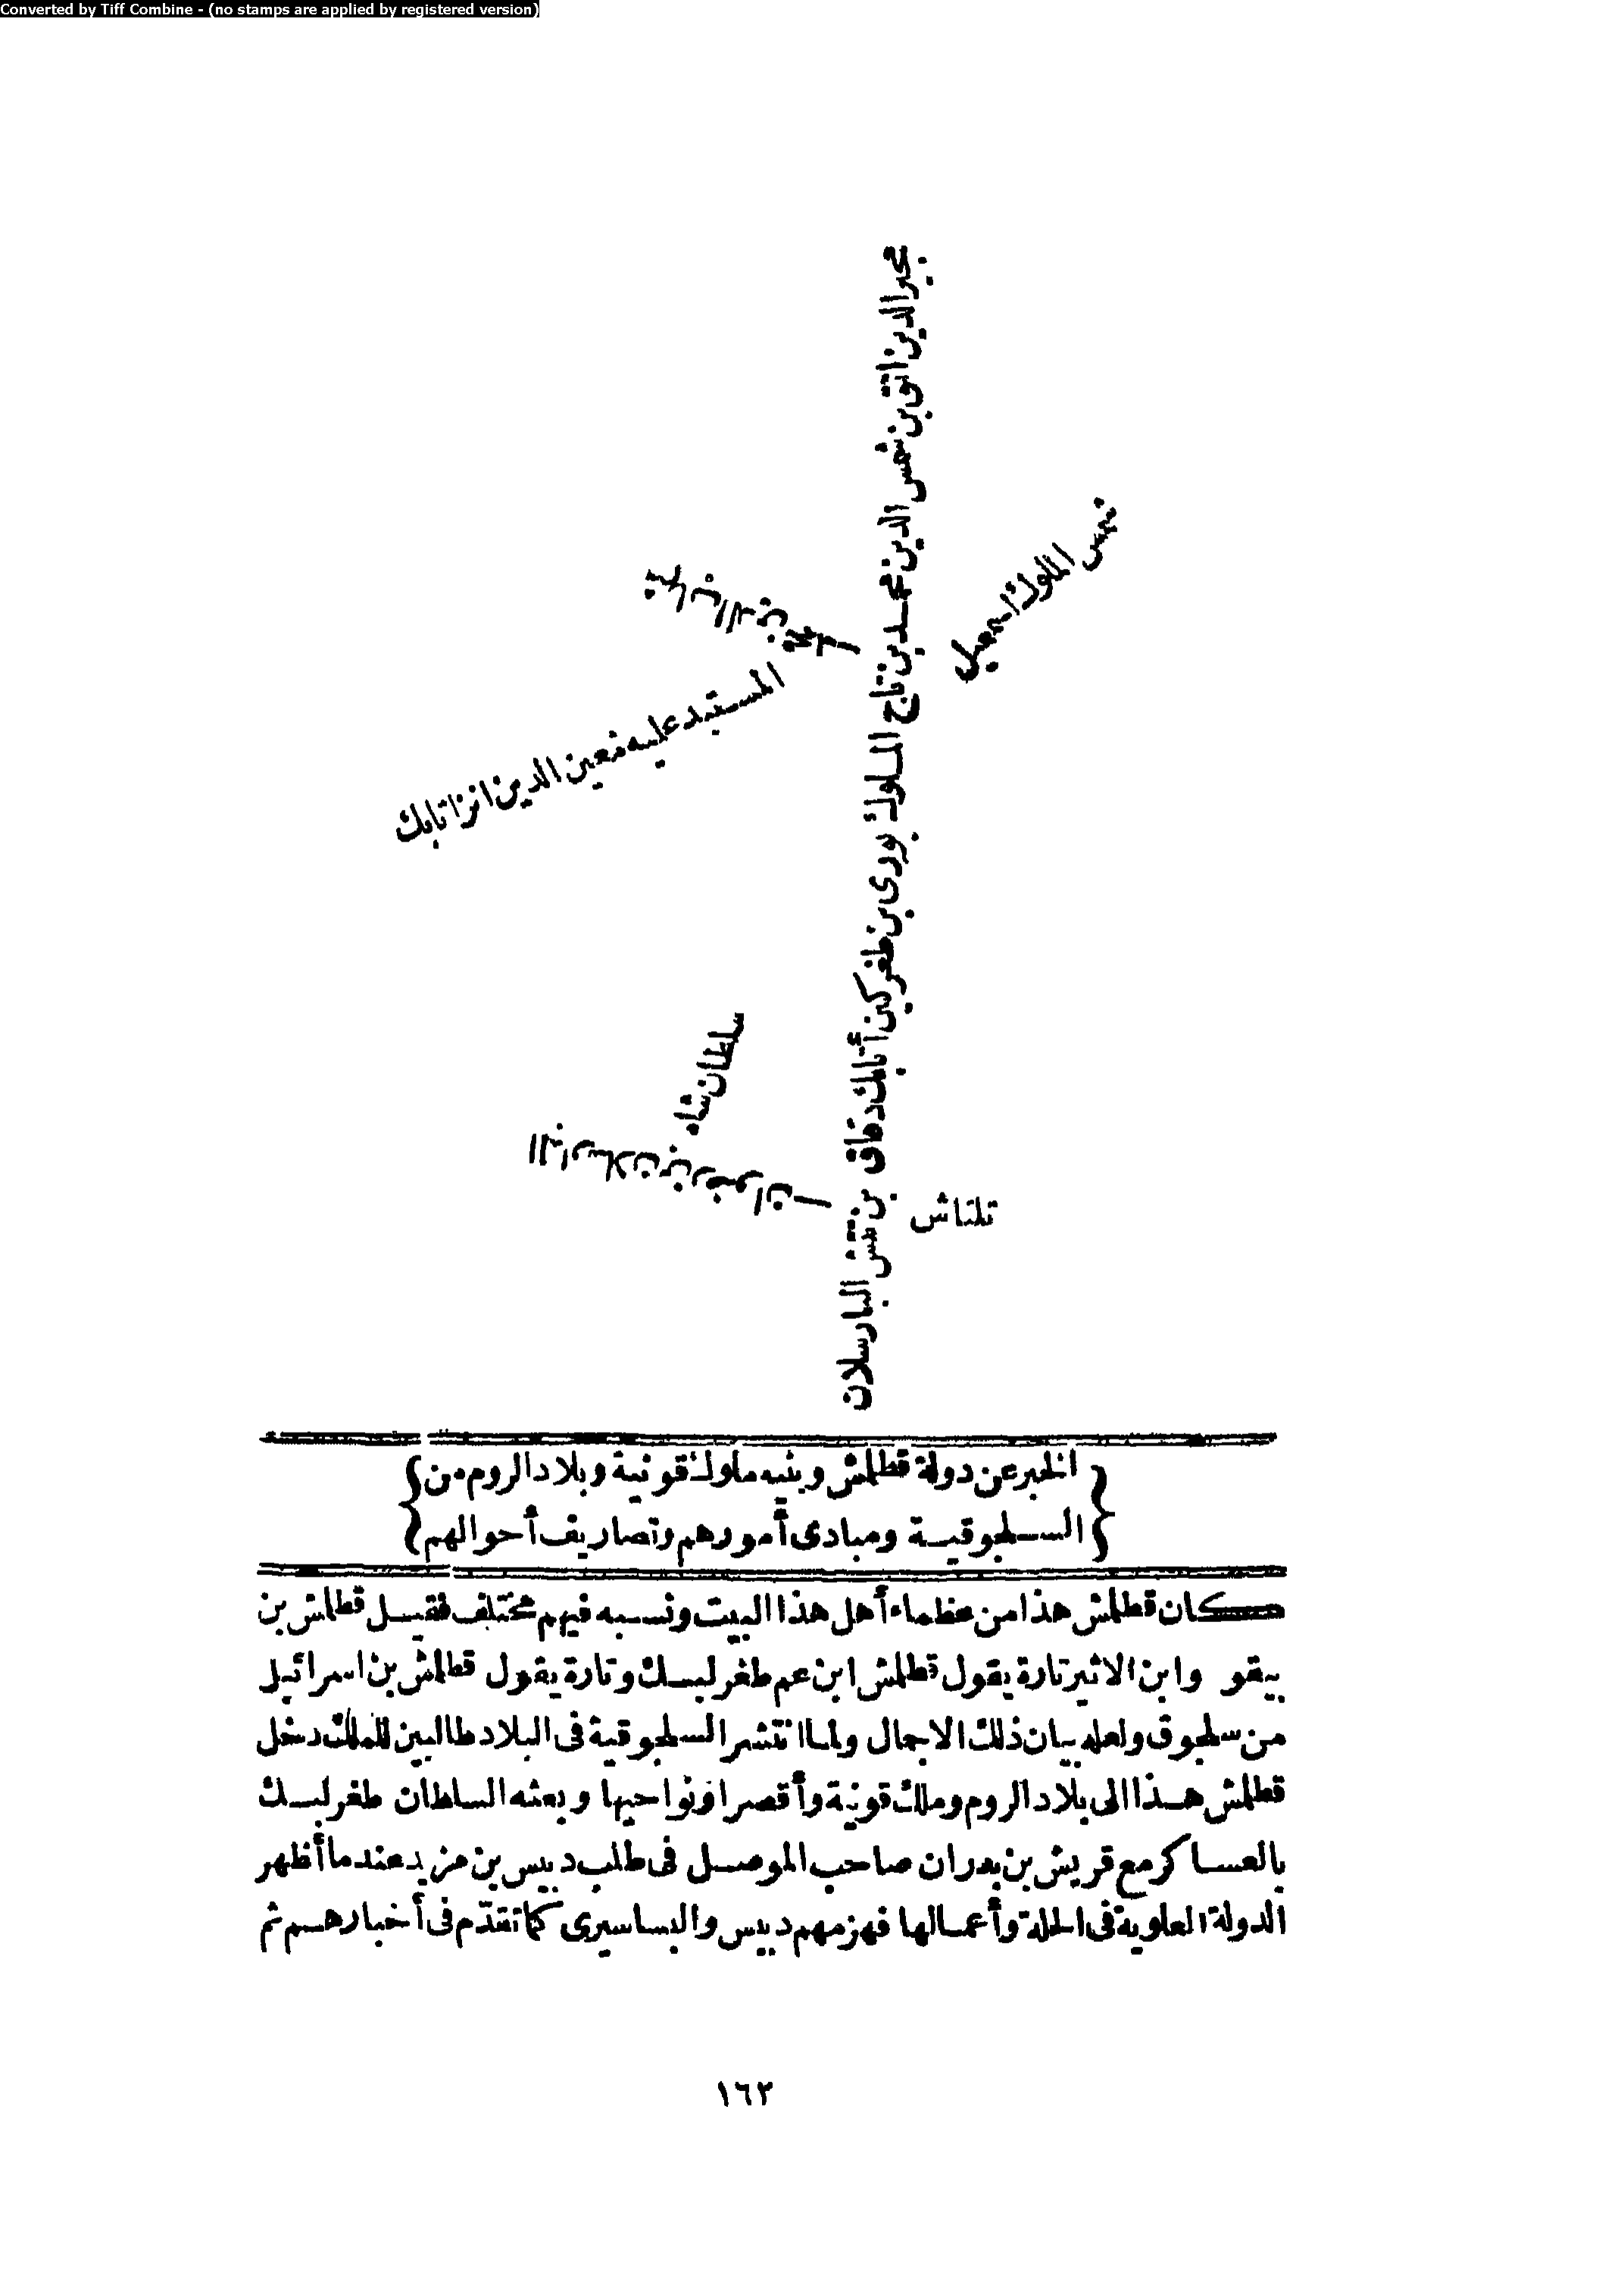 Converted by Tiff Combine - (no stamps are applied by registered version)
مجير الدين اتق بن شمس الدين محمد بن تاج الملوك بورى بن طغركين أتابك دقاق بن تتش البارسلان
شمس الملوك اسمعيل
المستبد عليه معين الدين انز اتابك
سلطان شاه
تلتاش
{ الخبر عن دولة قطلمش وبنيه ملوك قونية وبلاد الروم من }
{ السلجوقية ومبادى أمورهم وتصاريف أحوالهم }
كان قطلمش هذا من عظماء أهل هذا البيت ونسبه فيهم مختلف فقيل قطلمش بن
بيقو وابن الاثير تارة يقول قطلمش ابن عم طغرلبك وتارة يقول قطلمش بن اسرائيل
من سلجوق ولعله بيان ذلك الاجمال ولما انتشر السلجوقية فى البلاد طالبين للملك دخل
قطلمش هذا الى بلاد الروم وملك قونية وأقصرا ونواحيها وبعثه السلطان طغرلبك
بالعساكر مع قريش بن بدران صاحب الموصل فى طلب دبيس بن مزيد عندما أظهر
الدولة العلوية فى الحلة وأعمالها فهزمهم دبيس والبساسيرى كما تقدّم فى أخبارهم ثم
١٦٢